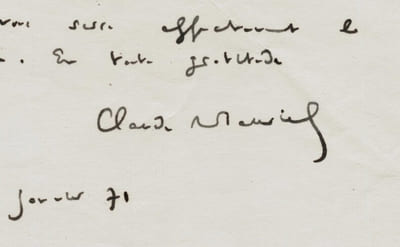 vous serre affectueusement l
. En toute gratitude
Claude Mauriac
janvier 71